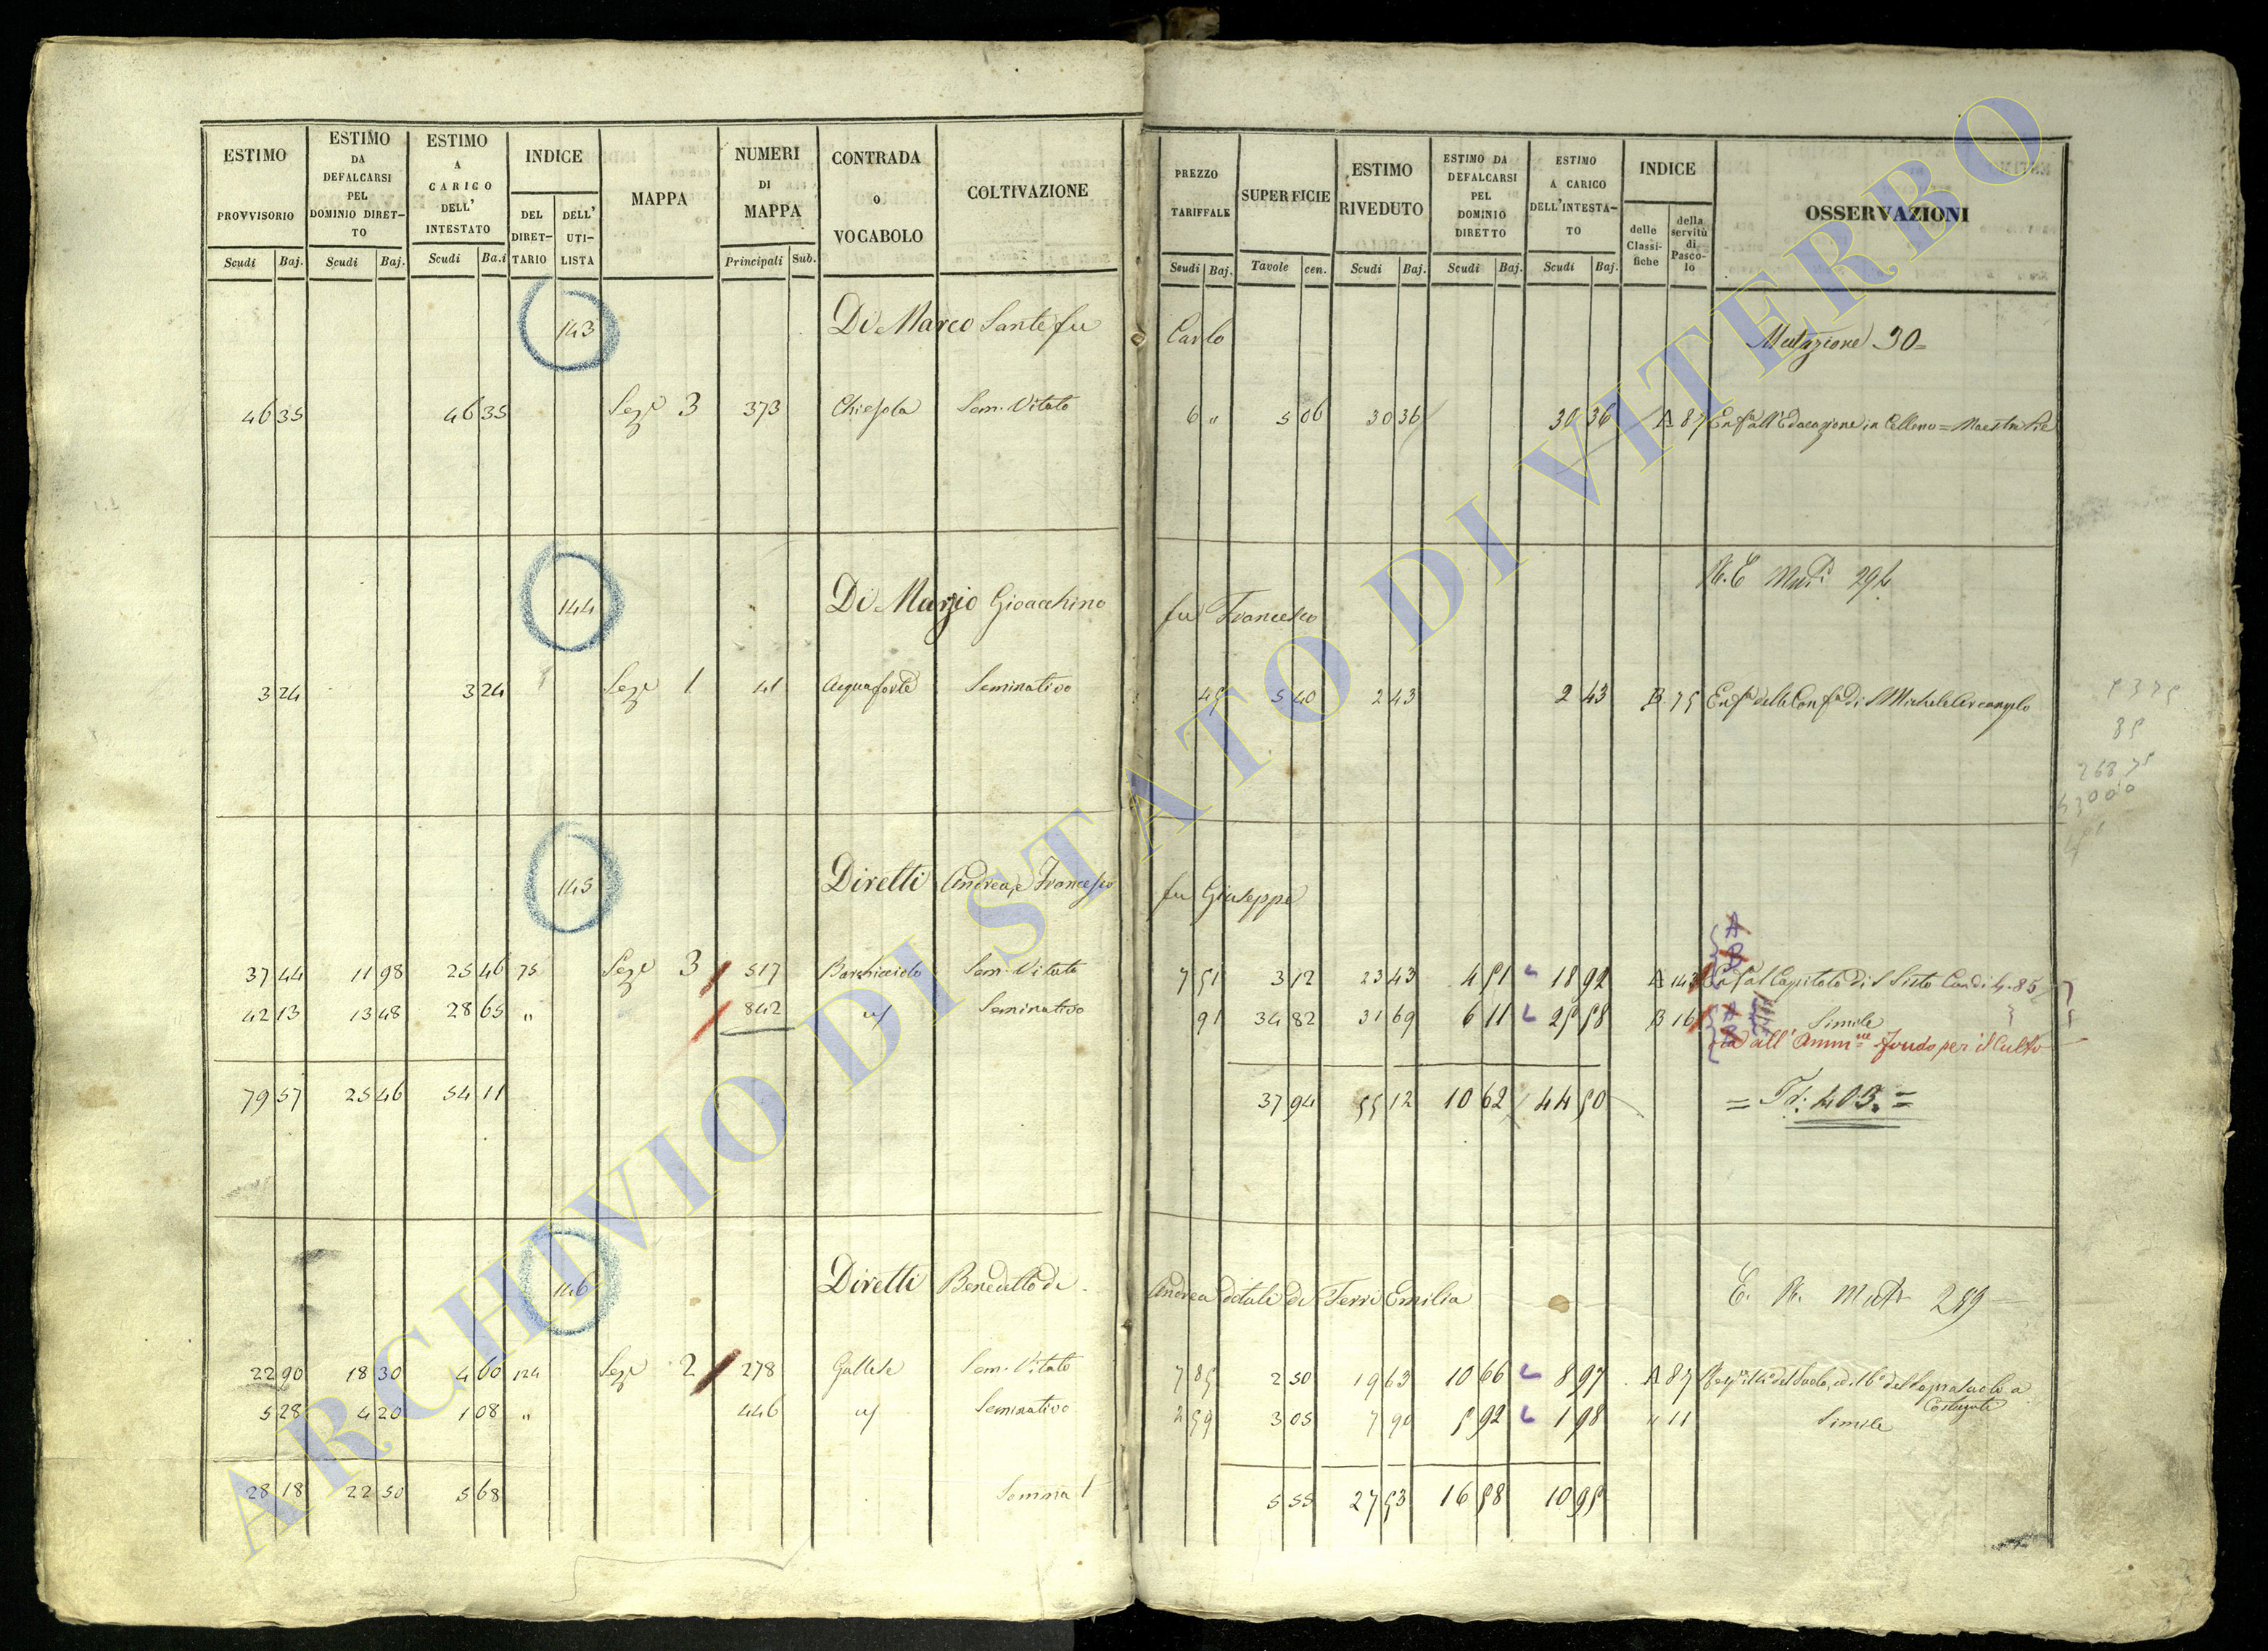 ESTIMO PROVVISORIO
Scudi Baj.
ESTIMO DA DEFALCARSI PEL DOMINIO DIRET-TO
Scudi Baj.
ESTIMO A CARICO DELL' INTESTATO
Scudi Ba.i
INDICE
DEL DIRET-TARIO
DELL' UTI-LISTA
MAPPA
NUMERI DI MAPPA
Principali Sub.
CONTRADA o VOCABOLO
COLTIVAZIONE
PREZZO TARIFFALE
Scudi Baj.
SUPERFICIE
Tavole cen.
ESTIMO RIVEDUTO
Scudi Baj.
ESTIMO DA DEFALCARSI PEL DOMINIO DIRETTO
Scudi Baj.
ESTIMO A CARICO DELL'INTESTA-TO
Scudi Baj.
INDICE
delle Classi-fiche
della servitù di Pasco-lo
OSSERVAZIONI
143 Di Marco Sante fu Carlo Mutazione 30=
46 35 46 35 Seze 3 373 Chiesola Sem. Vitato 6 " 5 06 30 36 30 36 A 87 Enfa all'Educazione in Celleno = Maestre Pie
144 Di Marzio Gioacchino fu Francesco
3 24 3 24 Seze 1 41 Acquaforte Seminativo 45 5 40 2 43 2 43 B 75 Enfa della Confa Di S Michele Arcangelo
145 Diretti Andrea, e Francesco fu Giuseppe
A
B
37 44 11 98 25 46 75 Seze 3 517 Sem. Vitato 7 51 3 12 23 43 4 51 18 92 A 143 Enfa al Capitolo Di S Sisto
42 13 13 48 28 65 " 842 Seminativo 91 34 82 31 69 6 11 25 58 B 16 Simile
all' Ammne Fondo per il Culto
79 57 25 46 54 11 37 94 55 12 10 62 44 50 = Tr. 403. =
146 Diretti Benedetto di Andrea dotali di Ferri Emilia E. R. Mut 259
22 90 18 30 4 60 124 Seze 2 278 Gallese Sem. Vitato 7 85 2 50 19 63 10 66 8 97 A 87
5 28 4 20 1 08 " 446 Seminativo 2 59 3 05 7 90 5 92 1 98 " 11 Simile
28 18 22 50 5 68 Somma 5 55 27 53 16 58 10 95
ARCHIVIO DI STATO DI VITERBO